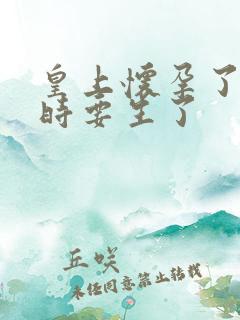 皇上怀孕了
时要生了
丘咲
未经同意禁止转载